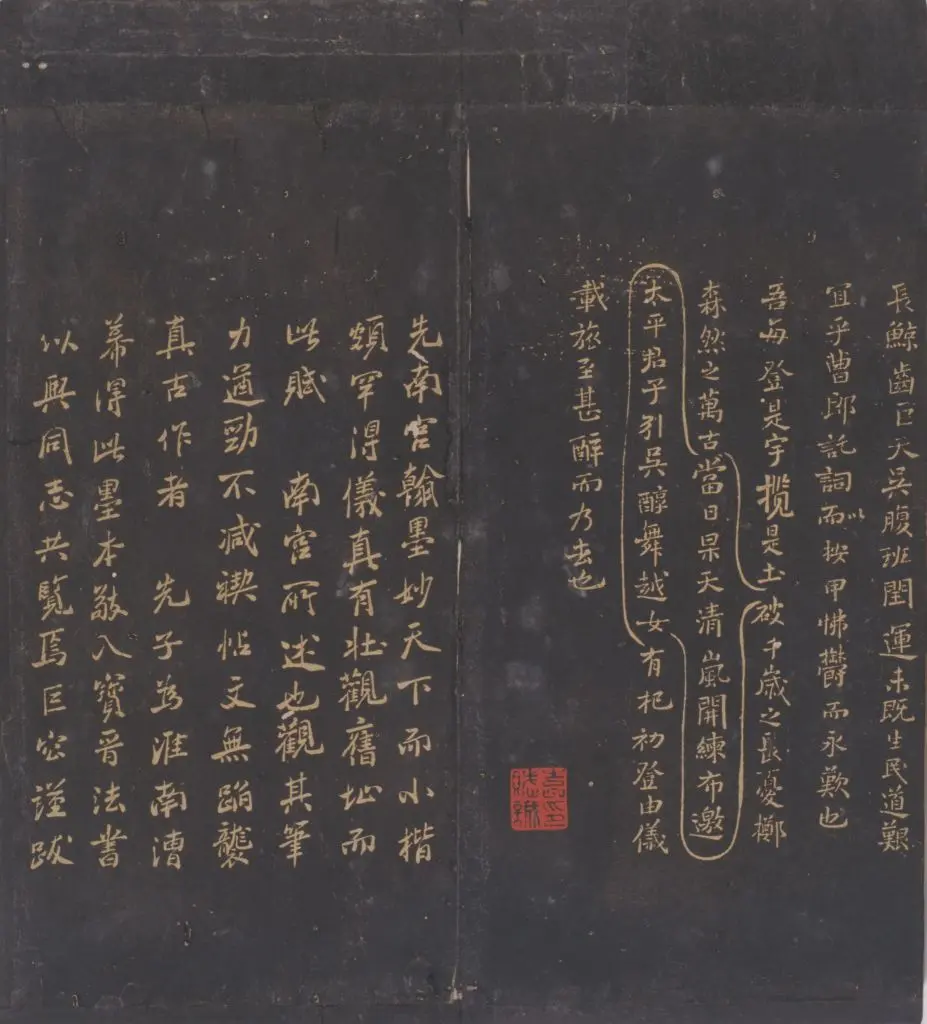 長鯨齒巨天吳腹班閏運未既生民道艱
宜乎曹郎託詞以而按甲怫鬱而永歎也
吾每登是宇攬是土破千歲之長憂擲
森然之萬古當日杲天清嵐開練布邀
太平君子引吳醇舞越女有杞初登由儀
載旅至甚醉而乃去也
先南宮翰墨妙天下而小楷
頗罕得儀真有壯觀舊址而
此賦 南宮所述也觀其筆
力遒勁不減禊帖文無蹈襲
真古作者 先子為淮南漕
幕得此墨本敬入寶晉法書
以與同志共覽焉巨容謹跋